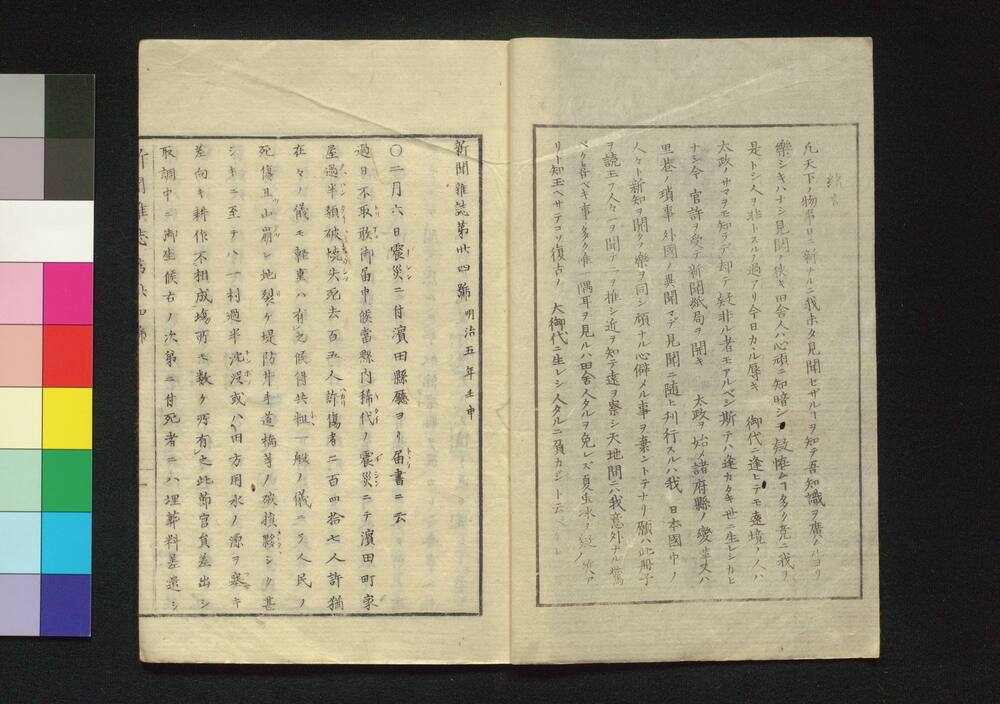 緒言
凡天下ノ物事日ニ新ナルニ我未タ見聞セザルヿヲ知テ吾知識ヲ廣クスルヨリ
樂シキハナシ見聞ノ狭キ田舎人ハ心頑ニ知暗シテ疑惟ムヿ多ク竟ニ我ヲ
是トシ人ヲ非トスルノ過アリ今日カヽル辱キ 御代ニ逢ヒテモ遠境ノ人ハ
太政ノサマヲモ知ラデ却テ疑非ル者モアルベシ斯テハ逢カタキ世ニ生レシカヒ
ナシ今 官許ヲ受テ新聞紙局ヲ開キ 太政ヲ始メ諸府縣ノ變革又ハ
里巷ノ瑣事外國ノ異聞マデ見聞ニ随ヒ刊行スルハ我 日本國中ノ
人々ト新知ヲ開クノ樂ヲ同シ頑ナル心僻メル事ヲ棄ントテナリ願ハ此冊子
ヲ読玉フ人々一ヲ聞テ二ヲ推シ近ヲ知テ遠ヲ察シ天地間ニハ我意外ナル驚
ベク喜ベキ事多ク唯一隅耳ヲ見ルハ田舎人タルヲ免レズ夏虫氷ノ疑ノ笑ア
リト知玉ヘサテコソ復古ノ 大御代ニ生レシ人タルニ負カジト云
新聞雜誌第廿四號 明治五年壬申
〇二月六日震災ニ付濱田縣廳ヨリ届書ニ云
過日不取敢御届申候當縣内稀代ノ震災ニテ濱田町家
屋過半類破焼失死去百五人許傷者二百四拾七人許猶
在々ノ儀モ軽重ハ有之候得共粗一般ノ儀ニテ人民ノ
死傷且山崩レ地裂ケ堤防井手道橋等ノ破損夥シク甚
シキニ至テハ一村過半沈没或ハ田方用水ノ源ヲ塞キ
差向キ耕作不相成場所モ数ケ所有之此節官員差出シ
取調中ニ御坐候右ノ次第ニ付死者ニハ埋葬料差遣シ
新聞雜志 第廿四號